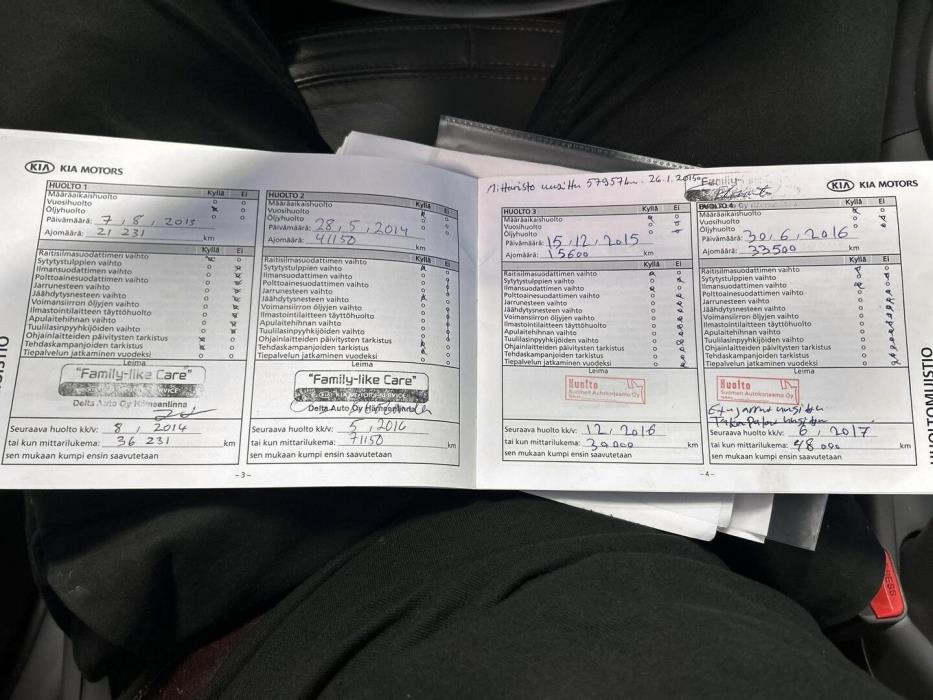 KIA KIA MOTORS
HUOLTO 1
Kyllä Ei
Määräaikaishuolto
Vuosihuolto
Öljyhuolto
Päivämäärä: 7, 8, 2013
Ajomäärä: 21 231 km
Kyllä Ei
Raitisilmasuodattimen vaihto
Sytytystulppien vaihto
Ilmansuodattimen vaihto
Polttoainesuodattimen vaihto
Jarrunesteen vaihto
Jäähdytysnesteen vaihto
Voimansiirron öljyjen vaihto
Ilmastointilaitteen täyttöhuolto
Apulaitehihnan vaihto
Tuulilasinpyyhkijöiden vaihto
Ohjainlaitteiden päivitysten tarkistus
Tehdaskampanjoiden tarkistus
Tiepalvelun jatkaminen vuodeksi
Leima
"Family-like Care"
SERVICE
Delta Auto Oy Hämeenlinna
Seuraava huolto kk/v: 8, 2014
tai kun mittarilukema: 36 231 km
sen mukaan kumpi ensin saavutetaan
-3-
HUOLTO 2
Kyllä Ei
Määräaikaishuolto
Vuosihuolto
Öljyhuolto
Päivämäärä: 28, 5, 2014
Ajomäärä: 41150 km
Kyllä Ei
Raitisilmasuodattimen vaihto
Sytytystulppien vaihto
Ilmansuodattimen vaihto
Polttoainesuodattimen vaihto
Jarrunesteen vaihto
Jäähdytysnesteen vaihto
Voimansiirron öljyjen vaihto
Ilmastointilaitteen täyttöhuolto
Apulaitehihnan vaihto
Tuulilasinpyyhkijöiden vaihto
Ohjainlaitteiden päivitysten tarkistus
Tehdaskampanjoiden tarkistus
Tiepalvelun jatkaminen vuodeksi
Leima
"Family-like Care"
KIA MOTORS SERVICE
Delta Auto Oy Hämeenlinna
Seuraava huolto kk/v: 5, 2016
tai kun mittarilukema: 71150 km
sen mukaan kumpi ensin saavutetaan
Mittaristo uusittu 57957km. 26.1.2015
"Family-
KIA KIA MOTORS
HUOLTO 3
Kyllä Ei
Määräaikaishuolto
Vuosihuolto
Öljyhuolto
Päivämäärä: 15, 12, 2015
Ajomäärä: 15600 km
Kyllä Ei
Raitisilmasuodattimen vaihto
Sytytystulppien vaihto
Ilmansuodattimen vaihto
Polttoainesuodattimen vaihto
Jarrunesteen vaihto
Jäähdytysnesteen vaihto
Voimansiirron öljyjen vaihto
Ilmastointilaitteen täyttöhuolto
Apulaitehihnan vaihto
Tuulilasinpyyhkijöiden vaihto
Ohjainlaitteiden päivitysten tarkistus
Tehdaskampanjoiden tarkistus
Tiepalvelun jatkaminen vuodeksi
Leima
Huolto
Suomen Autokorjaamo Oy
Seuraava huolto kk/v: 12, 2016
tai kun mittarilukema: 30000 km
sen mukaan kumpi ensin saavutetaan
HUOLTO 4
Kyllä Ei
Määräaikaishuolto
Vuosihuolto
Öljyhuolto
Päivämäärä: 30, 6, 2016
Ajomäärä: 33500 km
Kyllä Ei
Raitisilmasuodattimen vaihto
Sytytystulppien vaihto
Ilmansuodattimen vaihto
Polttoainesuodattimen vaihto
Jarrunesteen vaihto
Jäähdytysnesteen vaihto
Voimansiirron öljyjen vaihto
Ilmastointilaitteen täyttöhuolto
Apulaitehihnan vaihto
Tuulilasinpyyhkijöiden vaihto
Ohjainlaitteiden päivitysten tarkistus
Tehdaskampanjoiden tarkistus
Tiepalvelun jatkaminen vuodeksi
Leima
Huolto
Suomen Autokorjaamo Oy
Etujarrut uusittu
uusittu
Seuraava huolto kk/v: 6, 2017
tai kun mittarilukema: 48 000 km
sen mukaan kumpi ensin saavutetaan
-4-
HUOLTOMUISTIO
PRESS